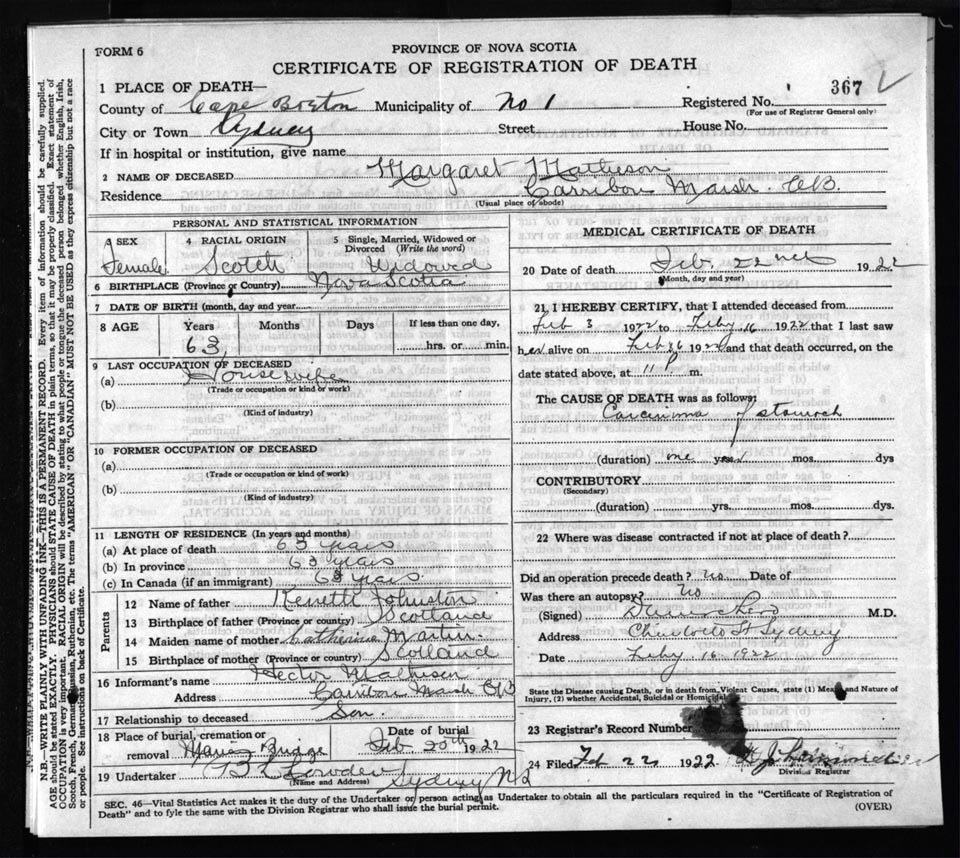 FORM 6
PROVINCE OF NOVA SCOTIA
CERTIFICATE OF REGISTRATION OF DEATH
367
1 PLACE OF DEATH—
County of Cape Breton Municipality of No 1 Registered No.
(For use of Registrar General only)
City or Town Sydney Street House No.
If in hospital or institution, give name
2 NAME OF DECEASED Margaret Matheson
Residence Carribou Marsh CB.
(Usual place of abode)
PERSONAL AND STATISTICAL INFORMATION
3 SEX 4 RACIAL ORIGIN 5 Single, Married, Widowed or Divorced (Write the word)
Female Scotch Widowed
6 BIRTHPLACE (Province or Country) Nova Scotia
7 DATE OF BIRTH (month, day and year
8 AGE Years Months Days If less than one day,
63 hrs. or min.
9 LAST OCCUPATION OF DECEASED
(a) Housewife
(Trade or occupation or kind of work)
(b)
(Kind of industry)
10 FORMER OCCUPATION OF DECEASED
(a)
(Trade or occupation or kind of work)
(b)
(Kind of industry)
11 LENGTH OF RESIDENCE (In years and months)
(a) At place of death 63 years
(b) In province 63 years
(c) In Canada (if an immigrant) 63 years
Parents
12 Name of father Kenneth Johnston
13 Birthplace of father (Province or country) Scotland
14 Maiden name of mother Catherine Martin
15 Birthplace of mother (Province or country) Scotland
16 Informant's name Hector Matheson
Address Carribou Marsh CB
17 Relationship to deceased Son
18 Place of burial, cremation or removal Date of burial
Maria Bridge Feb 25th 1922
19 Undertaker Sydney NS
(Name and Address)
MEDICAL CERTIFICATE OF DEATH
20 Date of death Feb. 22nd 1922
(Month, day and year)
21 I HEREBY CERTIFY, that I attended deceased from
Feb 3 1922 to Feby 16 1922 that I last saw
her alive on Feb 16 192 and that death occurred, on the
date stated above, at 11 P m.
The CAUSE OF DEATH was as follows:
Carcinoma of stomach
(duration) one yrs. mos. dys
CONTRIBUTORY
(Secondary)
(duration) yrs. mos. dys.
22 Where was disease contracted if not at place of death?
Did an operation precede death? no Date of
Was there an autopsy? no
(Signed) M.D.
Address Charlotte St Sydney
Date Feby 16 1922
State the Disease causing Death, or in death from Violent Causes, state (1) Means and Nature of
Injury, (2) whether Accidental, Suicidal or Homicidal
23 Registrar's Record Number
24 Filed Feb 22 1922
Division Registrar
SEC. 46—Vital Statistics Act makes it the duty of the Undertaker or person acting as Undertaker to obtain all the particulars required in the "Certificate of Registration of
Death" and to fyle the same with the Division Registrar who shall issue the burial permit. (OVER)
N.B.—WRITE PLAINLY, WITH UNFADING INK—THIS IS A PERMANENT RECORD. Every item of information should be carefully supplied.
AGE should be stated EXACTLY. PHYSICIANS should STATE CAUSE OF DEATH in plain terms, so that it may be properly classified. Exact statement of
OCCUPATION is very important. RACIAL ORIGIN will be described by stating to what people or tongue the deceased person belonged, whether English, Irish,
Scotch, French, German, Russian, Ruthenian, etc. The terms "AMERICAN" or "CANADIAN" MUST NOT BE USED as they express citizenship but not a race
or people. See instructions on back of Certificate.